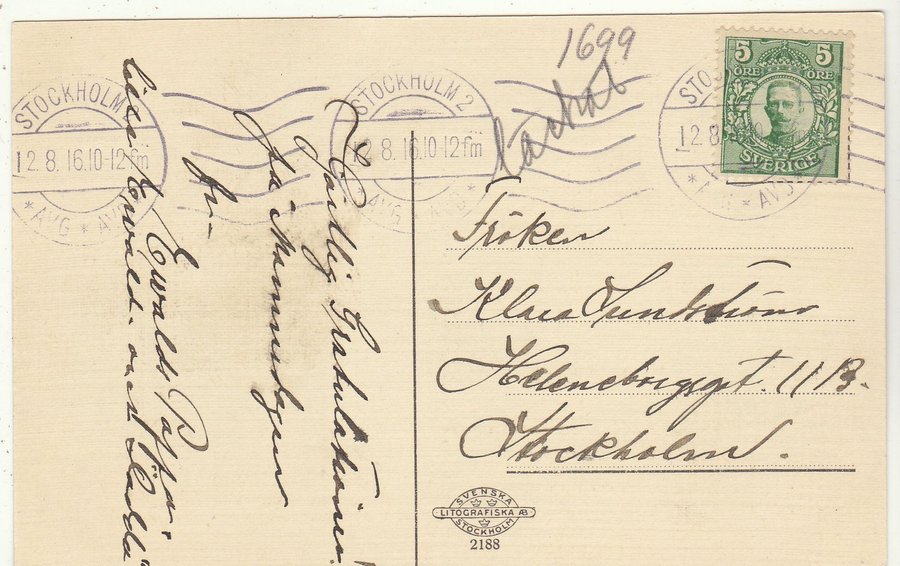 1699
5 5
ÖRE ÖRE
SVERIGE
STOCKHOLM
12.8.16.10-12 fm
* AVG * AVG
STOCKHOLM 2
12.8.16.10-12 fm
* AVG
STO
12.8
* AVG
Fröken
Klara Sundström
Heleneborgsgt. 11 B.
Stockholm.
Hjärtlig Gratulation
på Namnsdagen
från
Ewalds Pappa.
Ewald
SVENSKA
LITOGRAFISKA AB
STOCKHOLM
2188